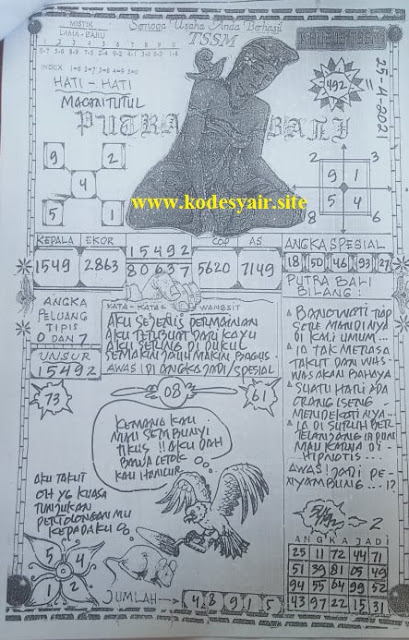 MISTIK
LAMA - BARU
Semoga Usaha Anda Berhasil
TSSM
INDEX
HATI - HATI
MACAN TUTUL
PUTRA BALI
492
25-4-2021
9 2
4
5 1
2 3
9 1
5 4
8 6
www.kodesyair.site
KEPALA EKOR
1549 2863
15492
80637
COP AS
5620 7149
ANGKA SPESIAL
18 50 46 93 27
ANGKA
PELUANG
TIPIS
0 DAN 7
UNSUR
15492
KATA - KATA WANGSIT
AKU SEJENIS PERMAINAN
AKU TERBUAT DARI KAYU
AKU SERING DI PUKUL
SEMAKIN JAUH MAKIN BAGUS
AWAS! DI ANGKA JADI/SPESIAL
PUTRA BALI
BILANG:
BANCI WATI TIAP
SORE MANDI NYA
DI KALI UMUM...
IA TAK MERASA
TAKUT DAN WAS-
WASAKAN BAHAYA
SUATU HARI ADA
ORANG ISENG
MENDEKATI NYA
IA DI SURUH BER
TELANJANG IA PUN
MAU KARNA DI
HIPNOTIS...
AWAS! JADI PE-
NYAMBUNG....!?
73
08
61
KEMANA KAU
MAU SEMBUNYI
TIKUS !! AKU DAH
KAU HANCUR
AKU TAKUT
OH YG KUASA
TUNJUKAN
PERTOLONGAN MU
KEPADAKU
5 4
1 2
JUMLAH → 4 8 9 1 5
2
ANGKA JADI
25 11 72 44 71
51 39 81 05 49
94 55 64 99 52
43 97 22 15 31